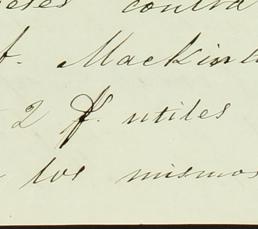 contra
Mackin
2 f. utiles
los mismos